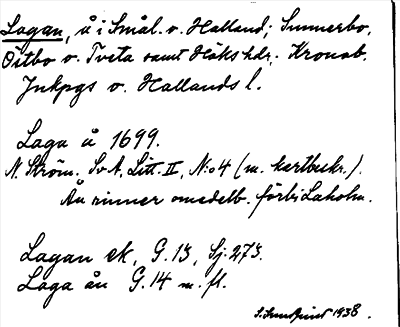 Lagan, å i Smål. o. Halland; Sunnerbo,
Östbo o. Tveta samt Höks hdr.; Kronob.
Jnkpgs o. Hallands l.
Laga å 1699.
N. Ström. Sv A, Litt. II, N:o 4 (m. kartbeskr.).
Ån rinner omedelb. förbi Laholm.
Lagan ek, G. 13, Sj. 273.
Laga ån G. 14 m. fl.
S. Sundquist 1938.